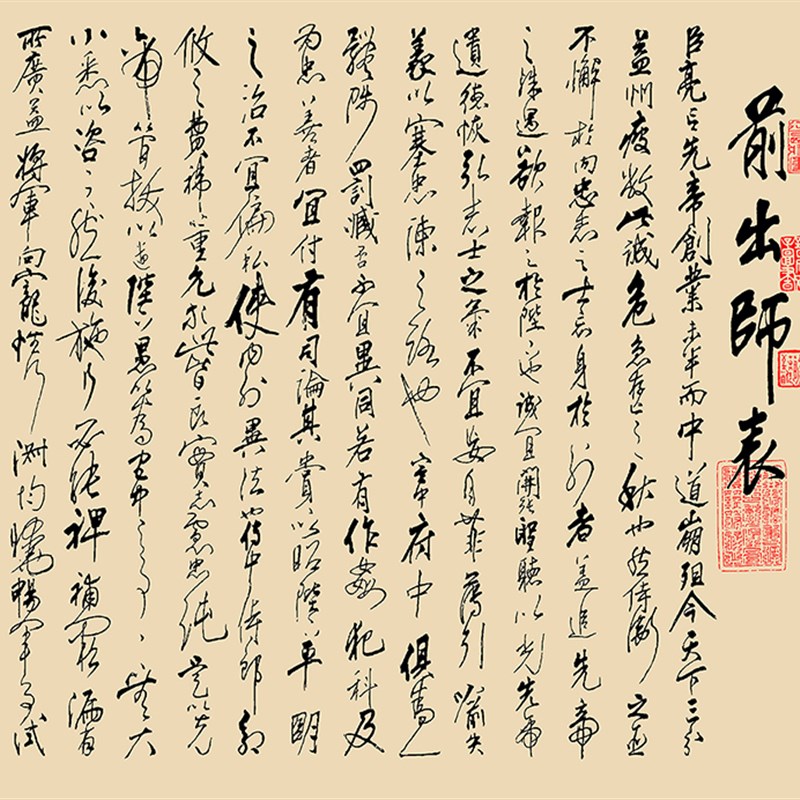 前出師表
臣亮言先帝創業未半而中道崩殂今天下三分
益州疲敝此誠危急存亡之秋也然侍衛之臣
不懈於內忠志之士忘身於外者蓋追先帝
之殊遇欲報之於陛下也誠宜開張聖聽以光先帝
遺德恢弘志士之氣不宜妄自菲薄引喻失
義以塞忠諫之路也宮中府中俱為一
體陟罰臧否不宜異同若有作姦犯科及
為忠善者宜付有司論其賞以昭陛下平明
之治不宜偏私使內外異法也侍中侍郎郭
攸之費禕董允等此皆良實志慮忠純是以先
帝簡拔以遺陛下愚以為宮中之事事無大
小悉以咨之然後施行必能裨補闕漏有
所廣益將軍向寵性行淑均曉暢軍事試